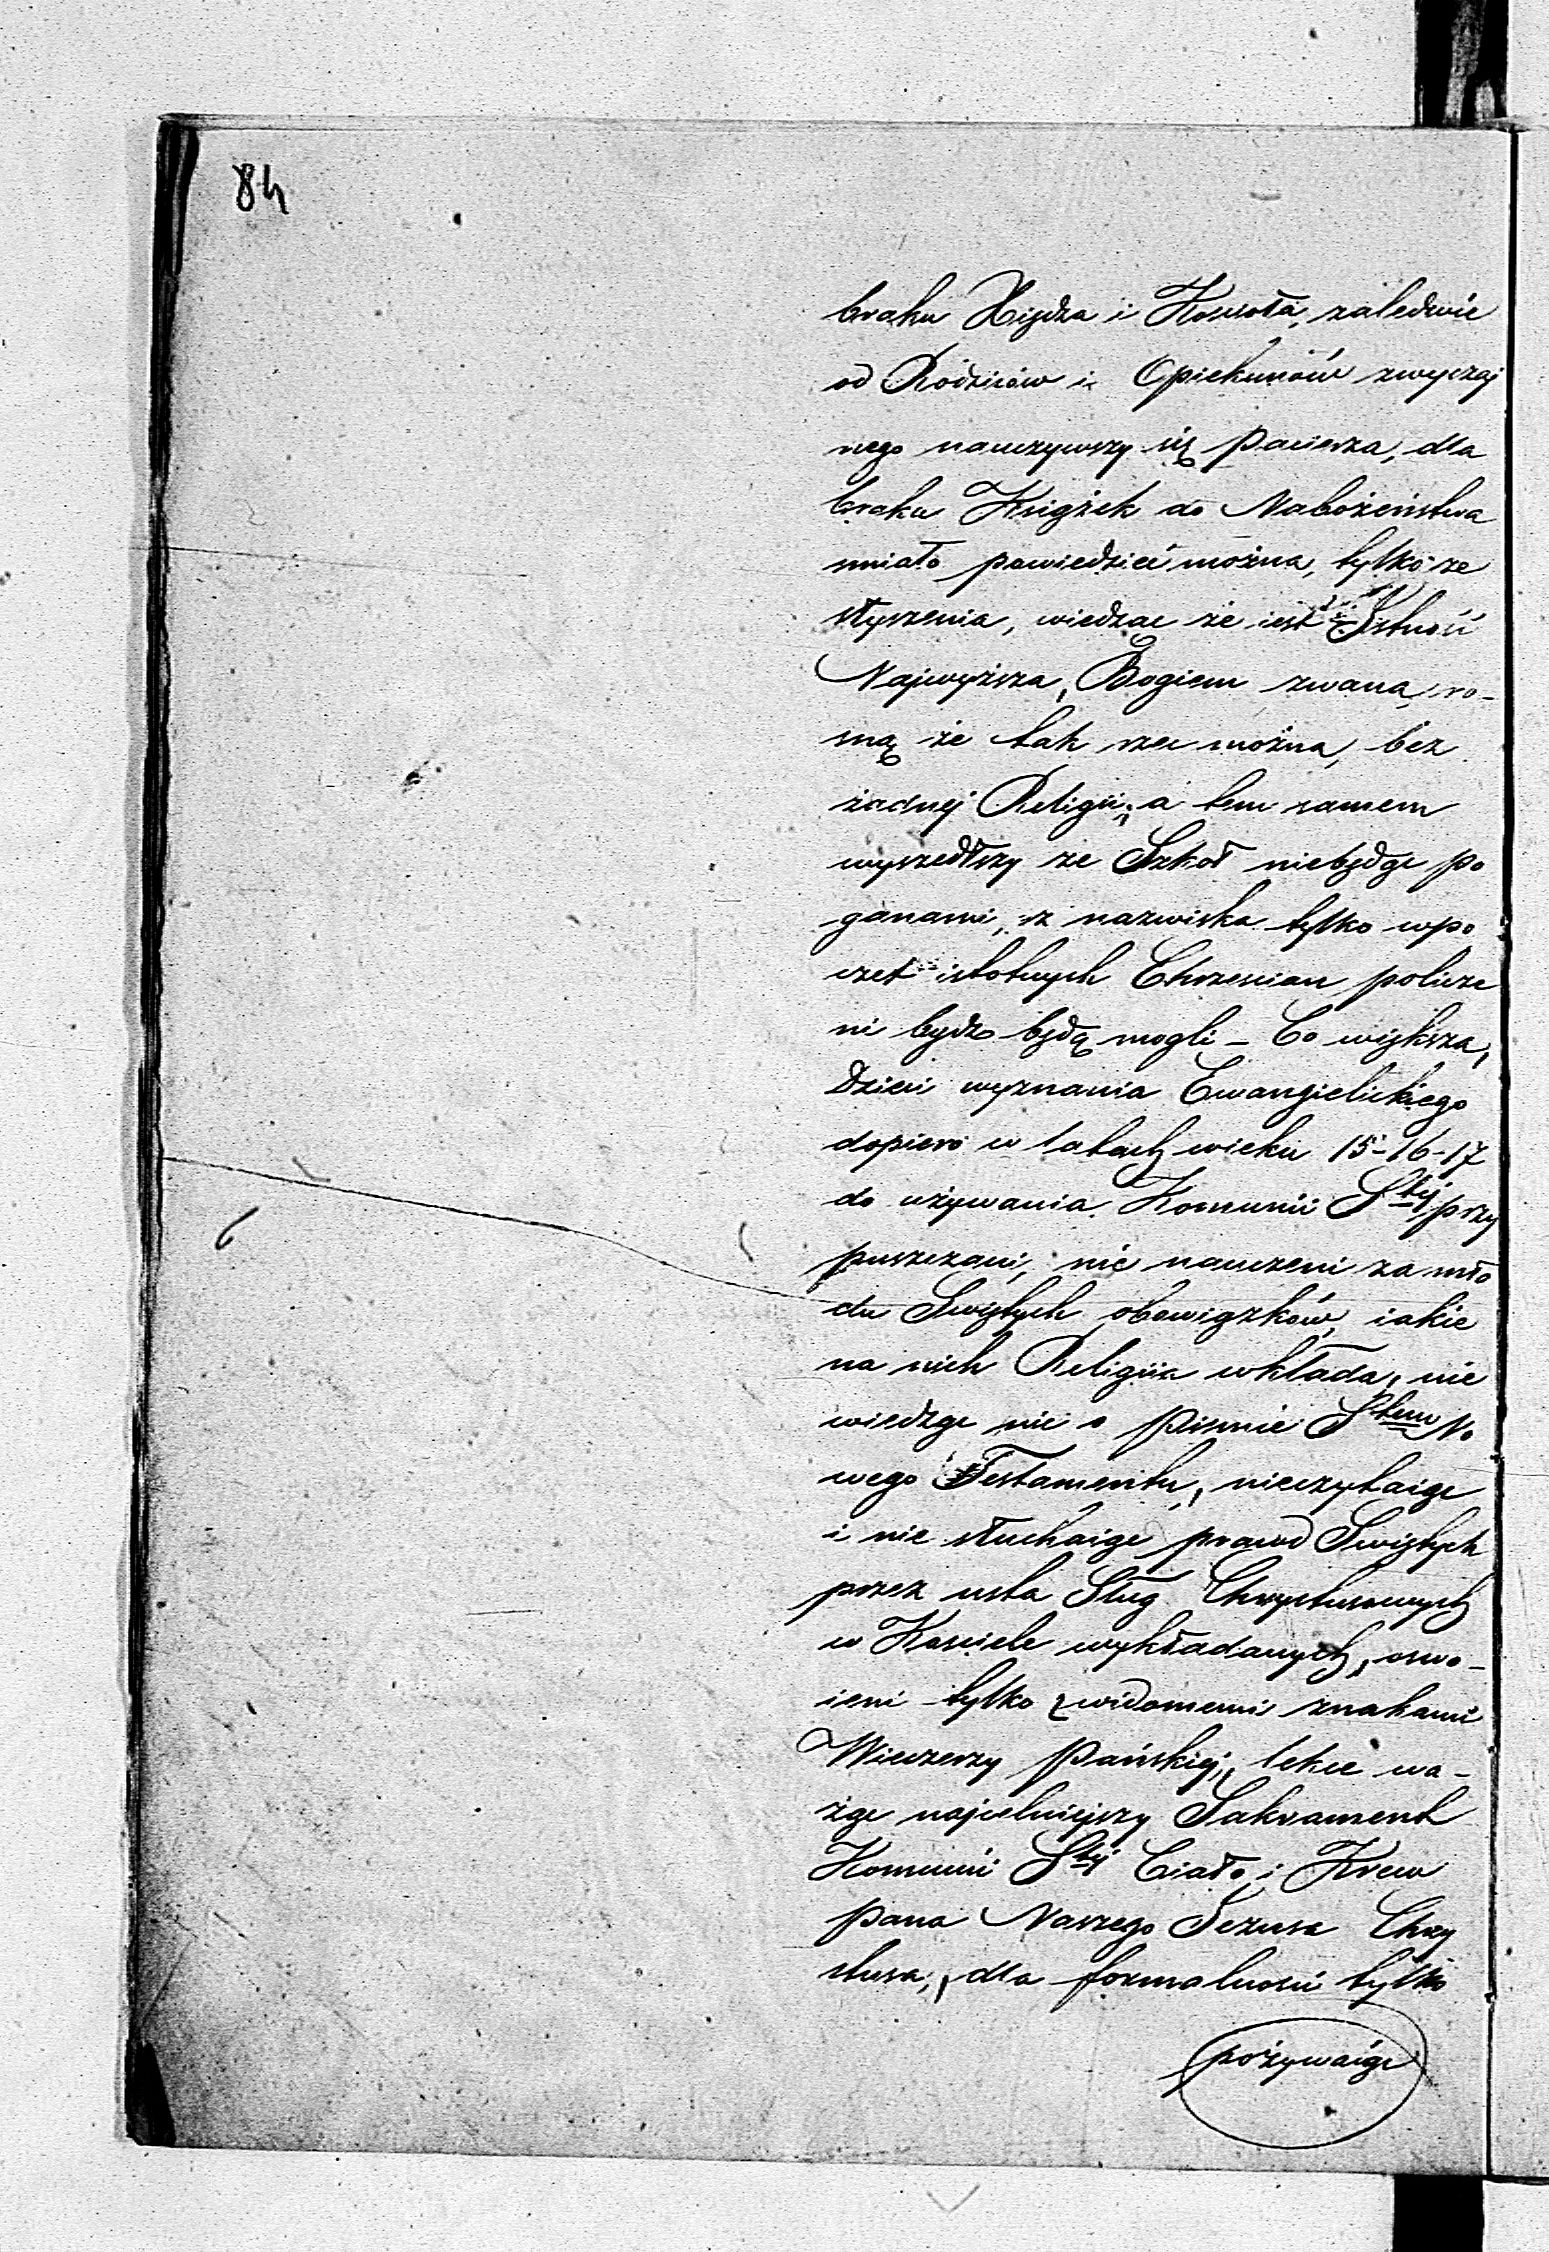 84
braku Xiędza i Kościoła, zaledwie
od Rodziców i Opiekunów zwyczaj
nego nauczywszy się Pacierza, dla
braku Książek do Nabożeństwa
śmiało powiedzieć można, tylko ze
słyszenia, wiedząc że iest Istność
Najwyższa, Bogiem zwana, ro-
sną że tak rzec można, bez
żadnej Religii, a tem samem
wyszedłszy ze Szkół niebędąc po
ganami, z nazwiska tylko wpo
czet istotnych Chrześcian policze
ni bydź będą mogli – Co większa,
Dzieci wyznania Ewangielickiego
dopiero w latach wieku 15-16-17
do używania Komunii Stej przy
puszczani, nie nauczeni za mło
du Świętych obowiązków, iakie
na nich Religiia wkłada, nie
wiedząc nic o Piśmie Stem No
wego Testamentu, nieczytaiąc
i nie słuchaiąc prawd Świętych
przez usta Sług Chrystusowych
w Kościele wykładanych, oswo-
ieni tylko z widomemi znakami
Wieczerzy Pańskiej, lekce wa-
żąc najcelniejszy Sakrament
Komunii Stej Ciało i Krew
Pana Naszego Jezusa Chry
stusa, dla formalności tylko
pożywaiąc